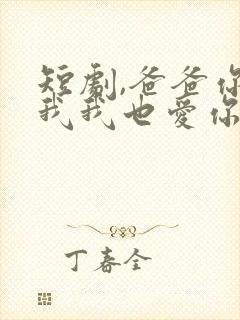 短劇,爸爸你
我我也愛你
丁春全